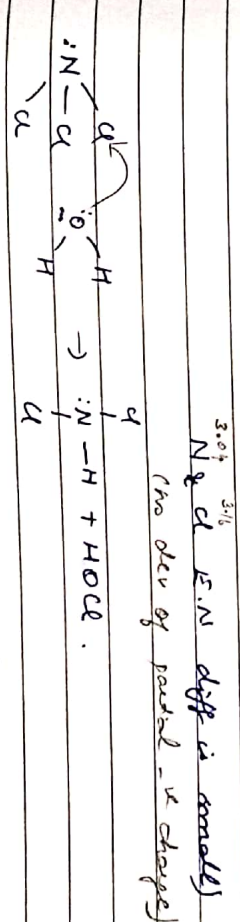 3.04 3.16
N & Cl E.N diff is small}
(no dev of partial -ve charge)
Cl H
:N – Cl :O → :N – H + HOCl.
Cl H Cl
Cl